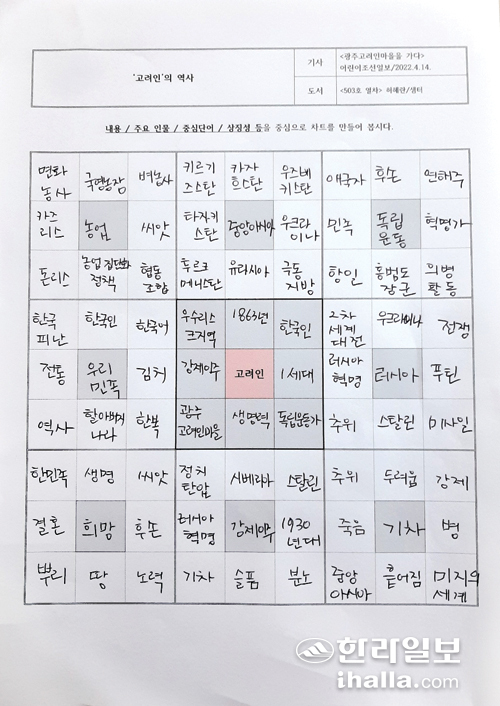 '고려인'의 역사
기사
<광주고려인마을을 가다>
어린이조선일보/2022.4.14.
도서
<503호 열차> 허혜란/샘터
내용 / 주요 인물 / 중심단어 / 상징성 들을 중심으로 차트를 만들어 봅시다.
면화 농사 국영농장 벼농사 키르기즈스탄 카자흐스탄 우즈베키스탄 애국자 후손 연해주
카즈리스 농업 씨앗 타지키스탄 중앙아시아 우크라이나 민족 독립운동 혁명가
돈리스 농업 집단화 정책 협동조합 투르크메니스탄 유라시아 극동지방 항일 홍범도 장군 의병활동
한국 피난 한국인 한국어 우수리스크지역 1863년 한국인 2차 세계대전 우크라이나 전쟁
전통 우리민족 김치 강제이주 고려인 1세대 러시아혁명 러시아 푸틴
역사 할아버지 나라 한복 광주 고려인마을 생명력 독립운동가 추위 스탈린 미사일
한민족 생명 씨앗 정치탄압 시베리아 스탈린 추위 두려움 강제
결혼 희망 후손 러시아혁명 강제이주 1930년대 죽음 기차 병
뿌리 땅 노력 기차 슬픔 분노 중앙아시아 흩어짐 미지의 세계
한라일보
ihalla.com